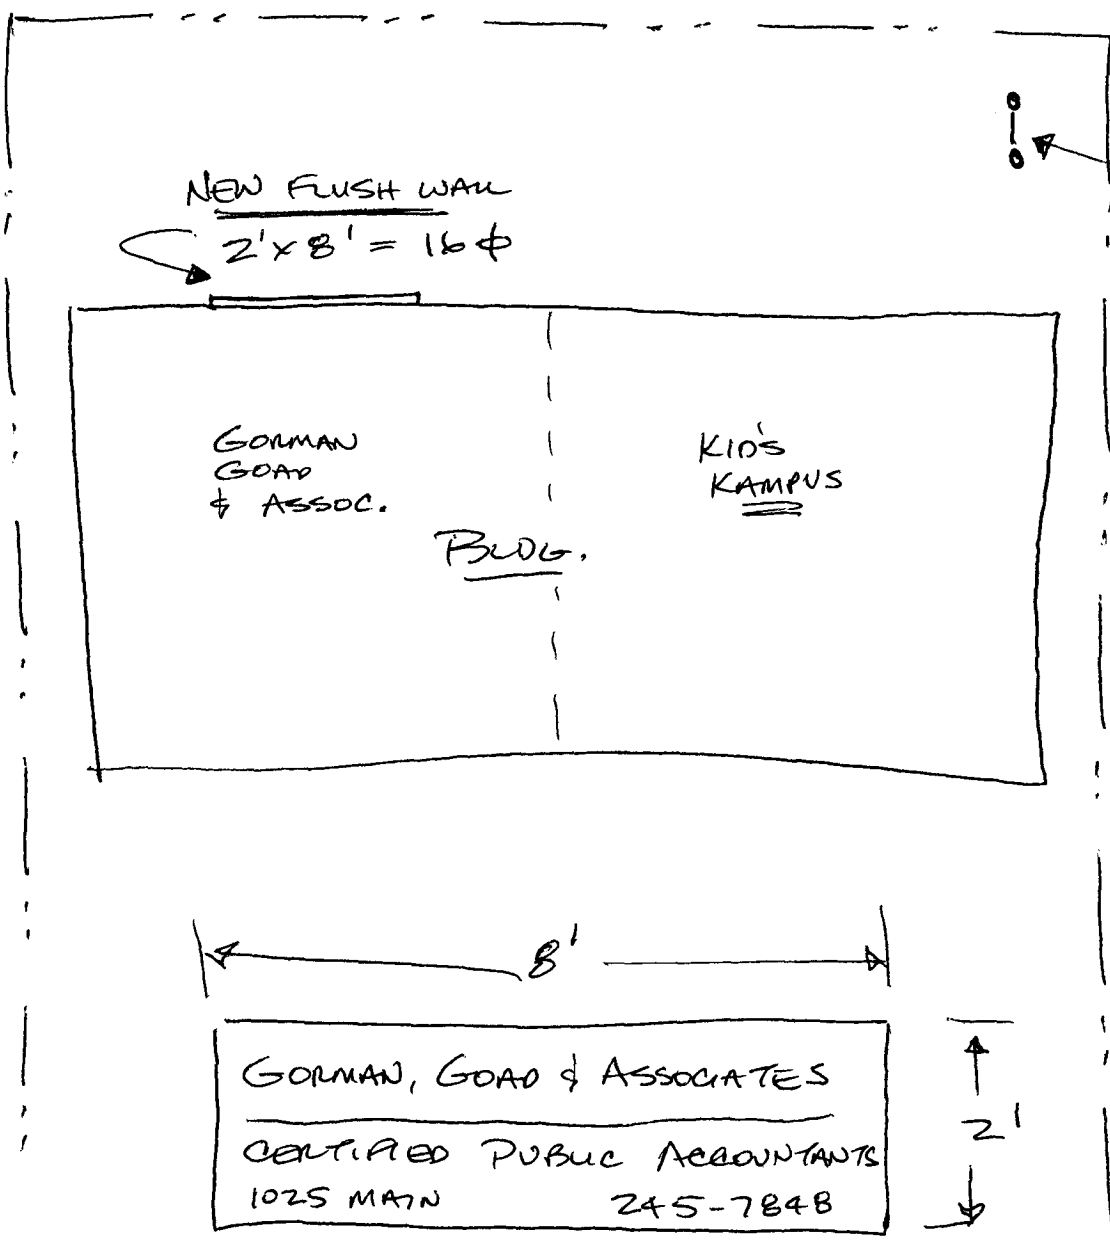 NEW FLUSH WALL
2'x8' = 16 ⏍
GORMAN
GOAD
& ASSOC.
KID'S
KAMPUS
BLDG.
8'
GORMAN, GOAD & ASSOCIATES
CERTIFIED PUBLIC ACCOUNTANTS
1025 MAIN 245-7848
2'